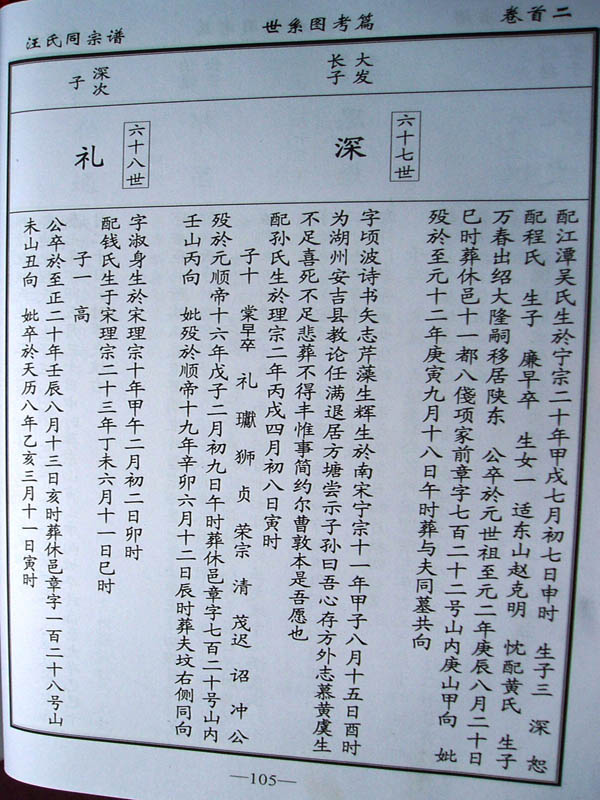 汪氏同宗谱 世系图考篇 卷首二
大发长子
深次子
六十七世
深
六十八世
礼
配江潭吴氏生於宁宗二十年甲戌七月初七日申时 生子三 深 恕
配程氏 生子 廉早卒 生女一 适东山赵克明 忱配黄氏 生子
万春出绍大隆嗣移居陕东 公卒於元世祖至元二年庚辰八月二十日
巳时葬休邑十一都八傻项家前章字七百二十二号山内庚山甲向 妣
殁於至元十二年庚寅九月十八日午时葬与夫同墓共向
字顷波诗书矢志芹藻生辉生於南宋宁宗十一年甲子八月十五日酉时
为湖州安吉县教论任满退居方塘尝示子孙曰吾心存方外志慕黄虞生
不足喜死不足悲葬不得丰惟事简约尔曹敦本是吾愿也
配孙氏生於理宗二年丙戌四月初八日寅时
子十 棠早卒 礼 瓛 狮 贞 荣宗 清 茂迟 诏 冲 公
殁於元顺帝十六年戊子二月初九日午时葬休邑章字七百二十号山内
壬山丙向 妣殁於顺帝十九年辛卯六月十二日辰时葬夫坟右侧同向
字淑身生於宋理宗十年甲午二月初二日卯时
配钱氏生于宋理宗二十三年丁未六月十一日巳时
子一 高
公卒於至正二十年壬辰八月十三日亥时葬休邑章字一百二十八号山
未山丑向 妣卒於天历八年乙亥三月十一日寅时
—105—